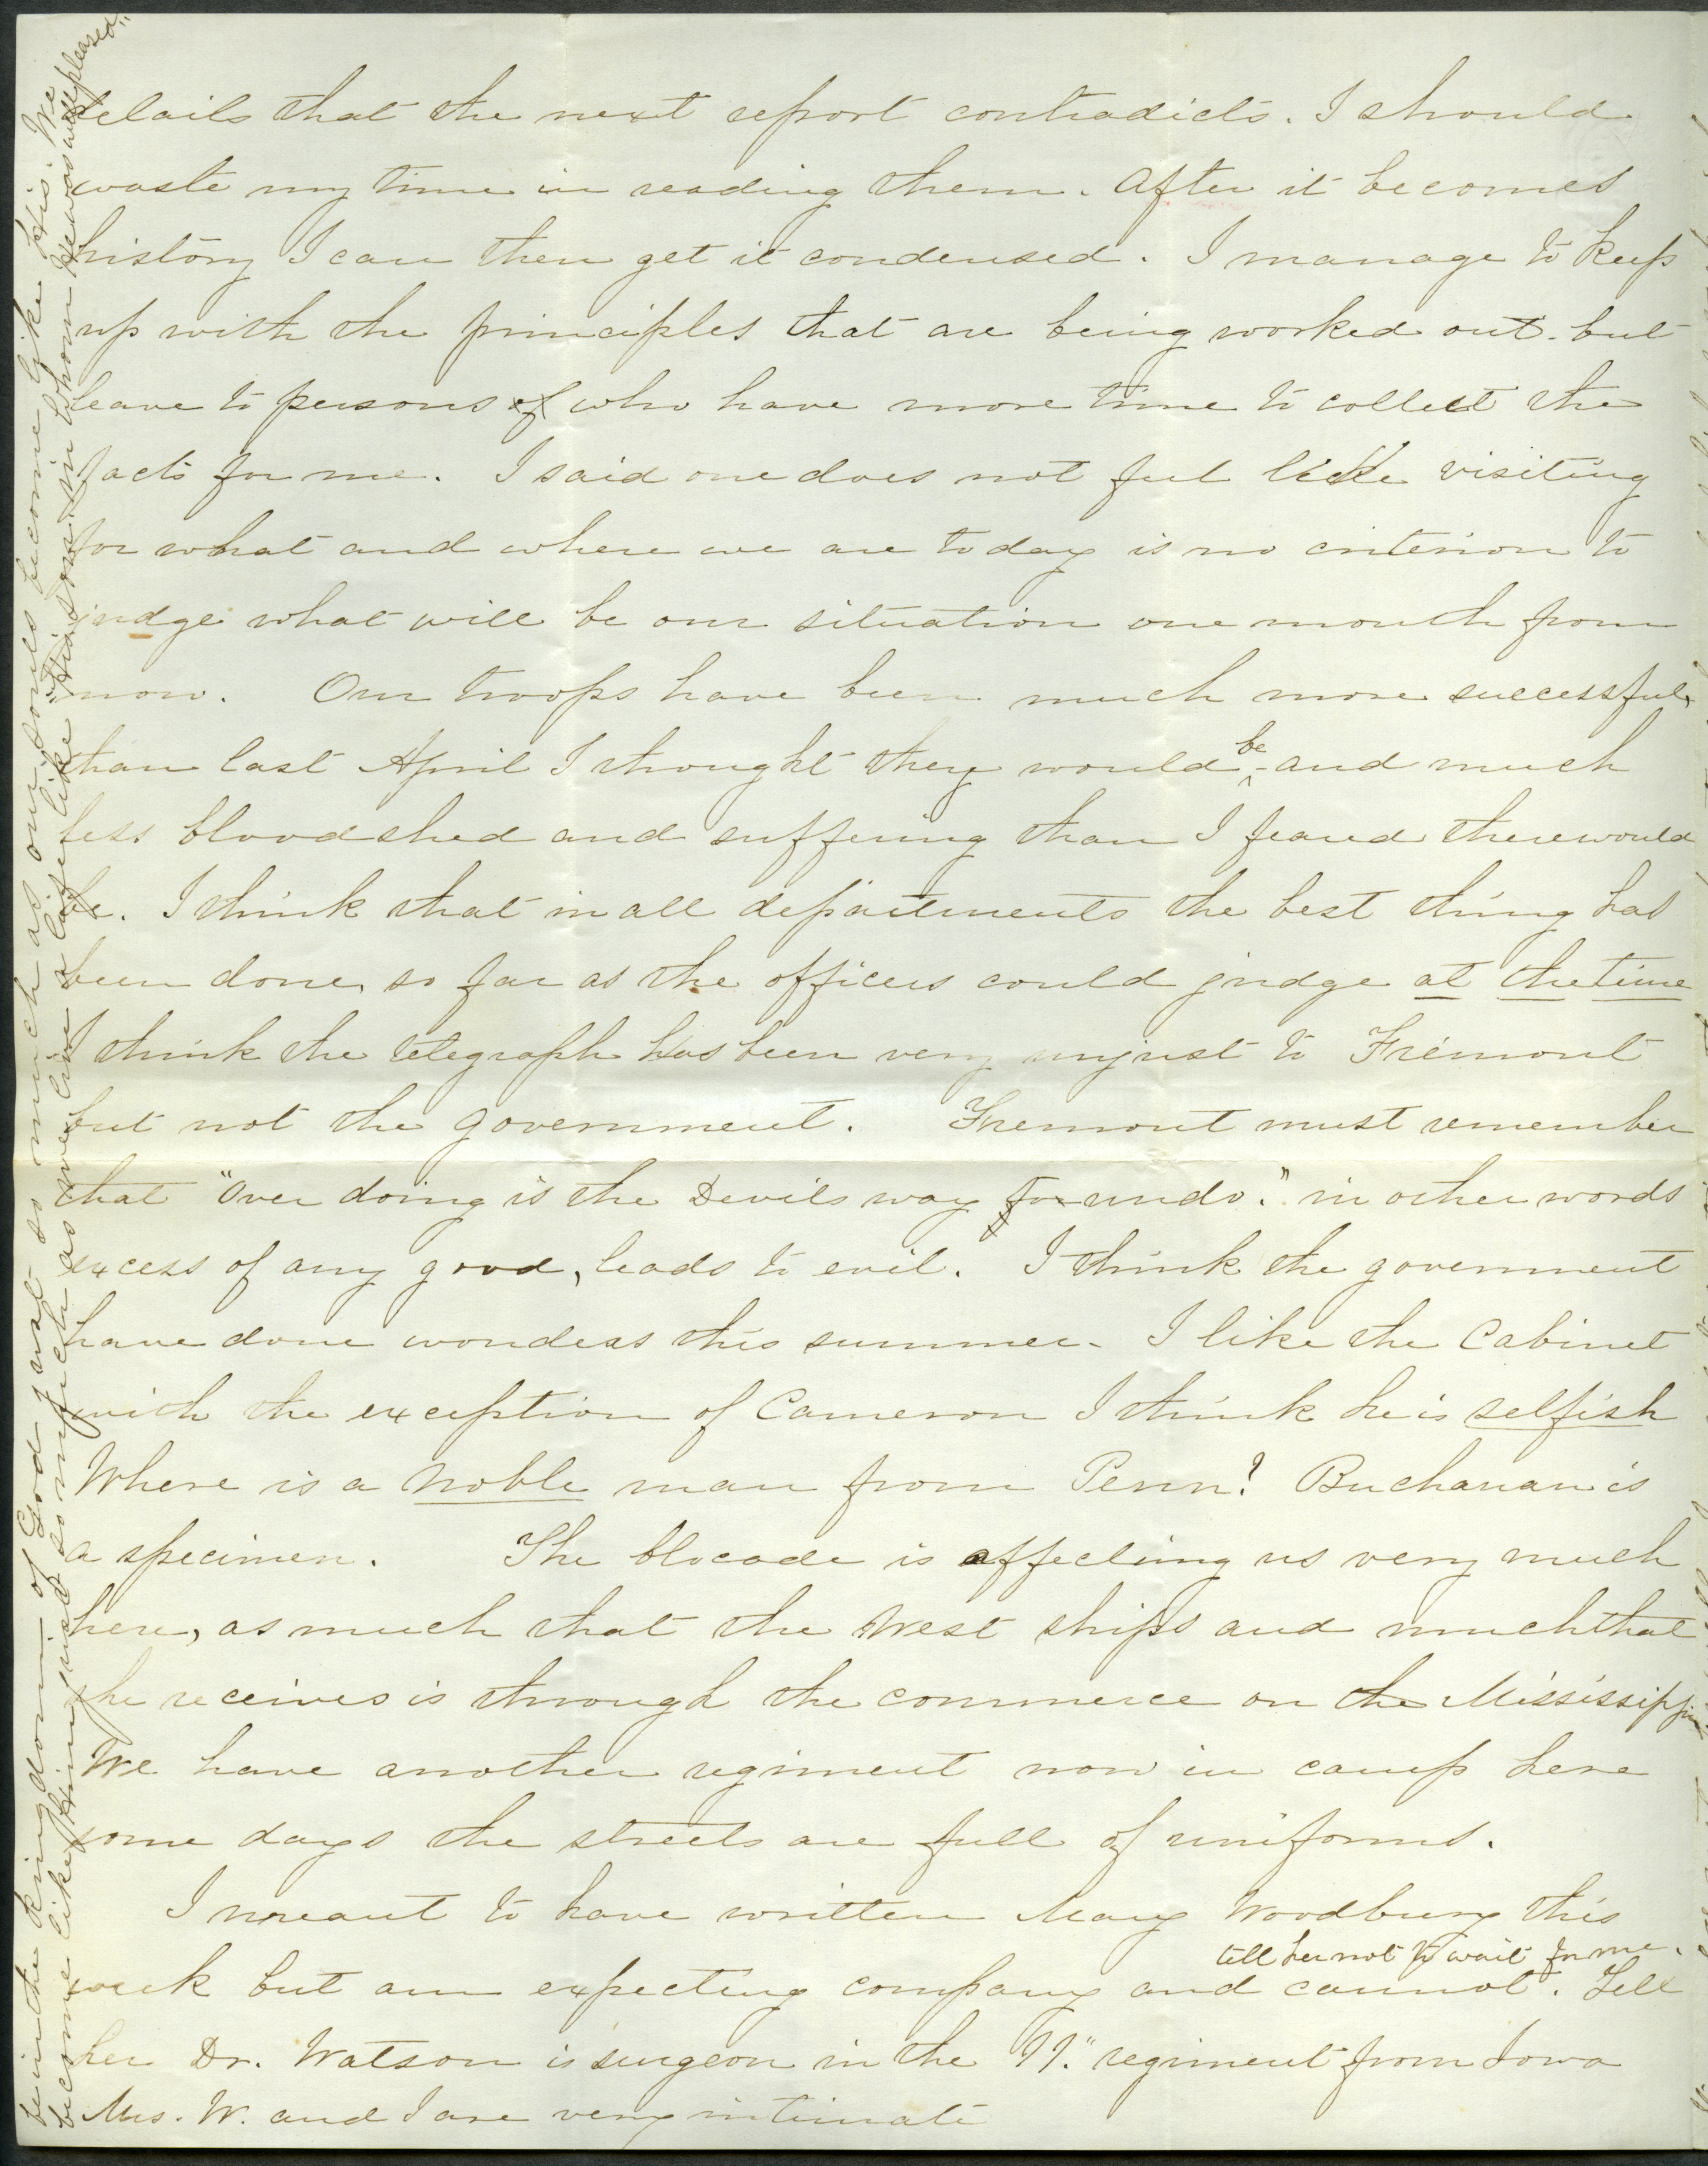 details that the next report contradicts. I should
waste my time in reading them. After it becomes
history I can then get it condensed. I manage to keep
up with the principles that are being worked out. but
leave to persons of who have more time to collect the
facts for me. I said one does not feel like visiting
for what and where we are today is no criterion to
judge what will be our situation one month from
now. Our troops have been much more successful
than last April I thought they would be and much
less bloodshed and suffering than I feared there would
be. I think that in all departments the best thing has
been done, so far as the officers could judge at the time
I think the telegraph has been very unjust to Fremont
but not the government. Fremont must remember
that "Over doing is the Devils way to undo." in other words
excess of any good, leads to evil. I think the government
have done wonders this summer. I like the Cabinet
with the exception of Cameron I think he is selfish
Where is a noble man from Penn? Buchanan is
a specimen. The blocade is affecting us very much
here, as much that the West ships and much that
she receives is through the commerce on the Mississippi
We have another regiment now in camp here
some days the streets are full of uniforms.
I meant to have written Mary Woodbury this
tell her not to wait for me.
week but am expecting company and cannot. Tell
her Dr. Watson is surgeon in the 11." regiment from Iowa
Mrs. W. and I are very intimate
be in the kingdom of God just so much as our souls become like His. We
become like Him just so much as we live a life like "His son in whom he was well pleased."